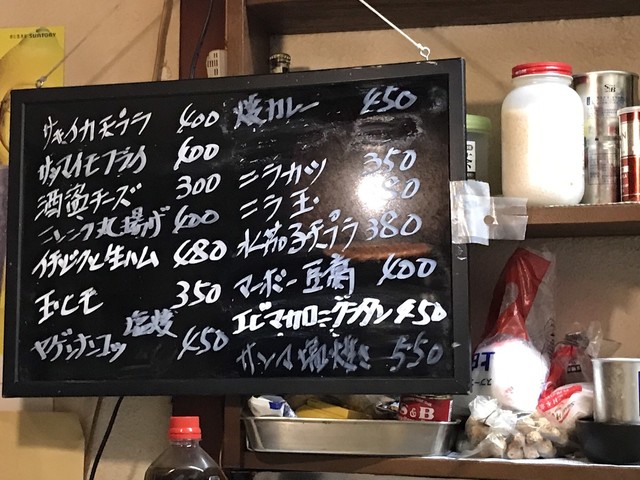 サキイカ天プラ 400
サツマイモフライ 400
酒盗チーズ 300
ニンニク丸揚げ 400
イチジクと生ハム 480
玉ヒモ 350
ヤゲンナンコツ 塩焼 450
焼カレー 450
ニラカツ 350
ニラ玉
水茄子天プラ 380
マーボー豆腐 400
エビマカロニグラタン 450
サンマ塩焼き 550
SUNTORY
S&B